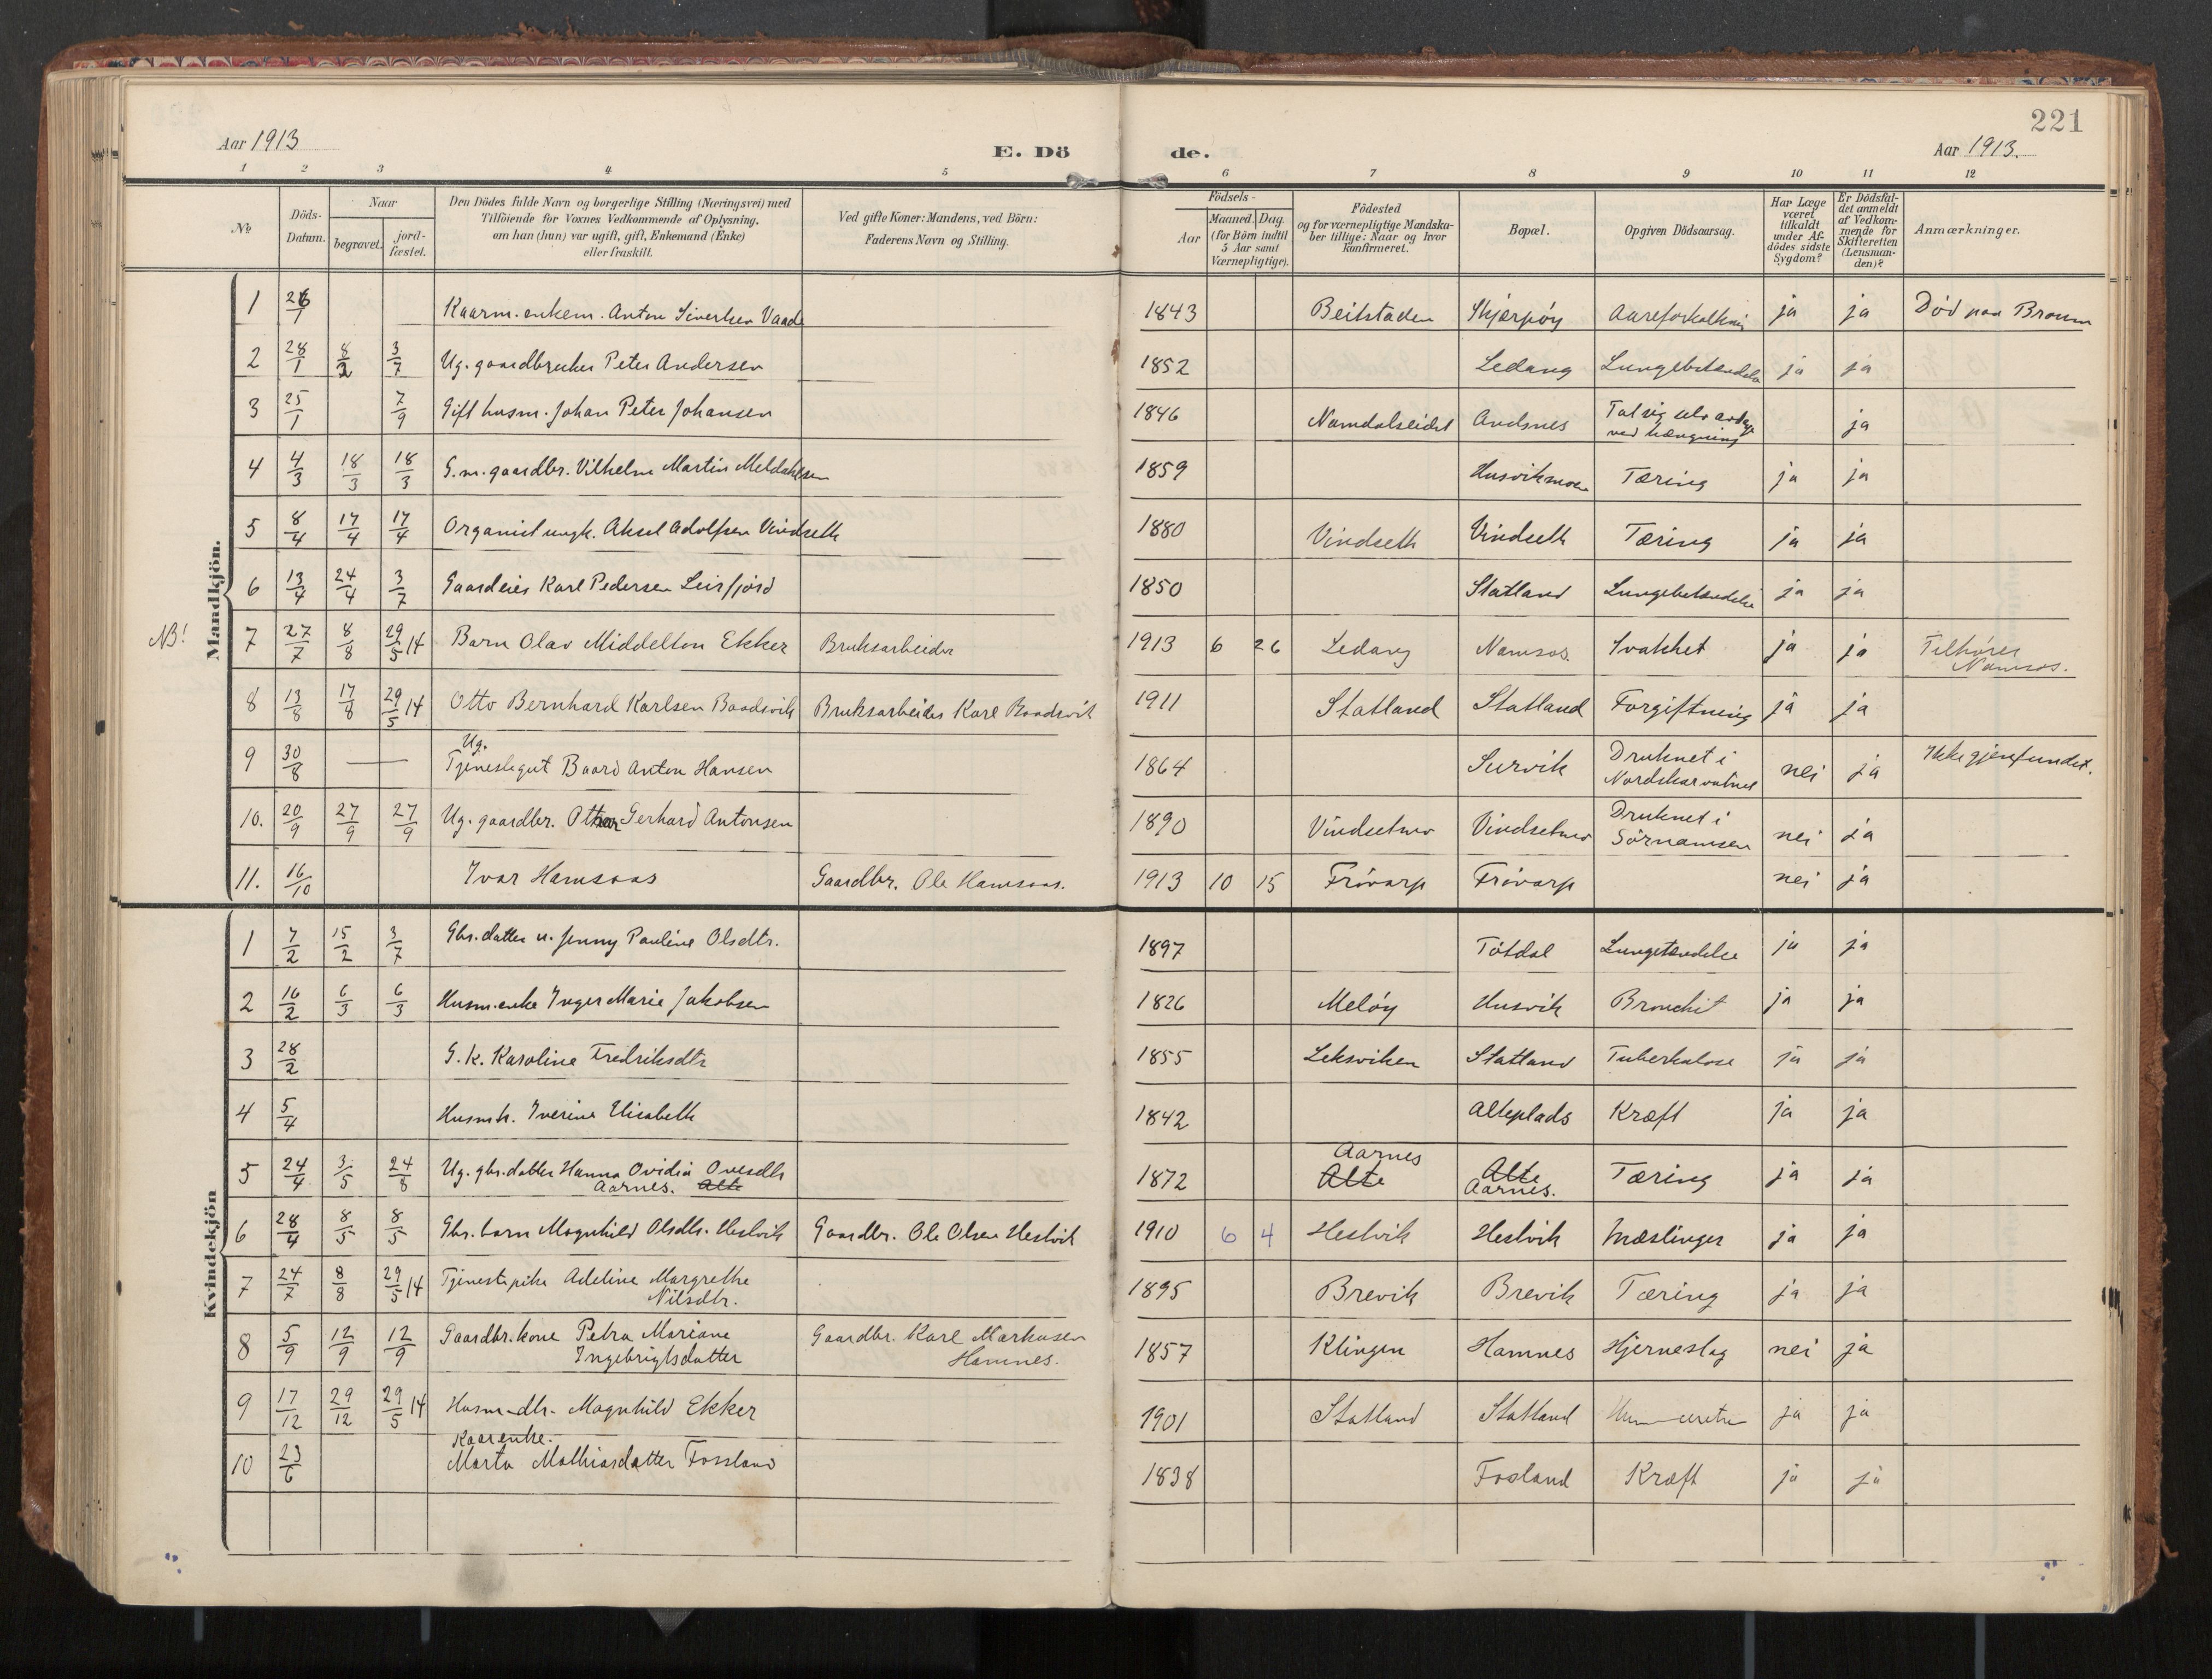 221
Aar 1913
E. Dö
de.
Aar 1913.
1 2 3 4 5 6 7 8 9 10 11 12
№
Döds-
Datum.
Naar
begravet.
jord-
fæstet.
Den Dödes fulde Navn og borgerlige Stilling (Næringsvei) med
Tilföiende for Voxnes Vedkommende af Oplysning,
om han (hun) var ugift, gift, Enkemand (Enke)
eller fraskilt.
Ved gifte Koner: Mandens, ved Börn:
Faderens Navn og Stilling.
Födsels-
Aar
Maaned. Dag.
(for Börn indtil
5 Aar samt
Værnepligtige).
Födested
og for værnepligtige Mandska-
ber tillige: Naar og hvor
konfirmeret.
Bopæl.
Opgiven Dödsaarsag.
Har Læge
været
tilkaldt
under Af-
dödes sidste
Sygdom?
Er Dödsfal-
det anmeldt
af Vedkom-
mende for
Skifteretten
(Lensman-
den)?
Anmærkninger.
Mandkjön.
1 26/1 Kaarm. enkem. Anton Sivertsen Vaade 1843 Beitstaden Skjærpöy Aareforkalkning ja ja Död paa
2 28/1 8/2 3/7 Ug. gaardbruker Peter Andersen 1852 Ledang Lungebetændelse ja ja
3 25/1 7/9 Gift husm. Johan Peter Johansen 1846 Namdalseidet Andsnes Tat sig selv av dage
ved hængning ja
4 4/3 18/3 18/3 G.m. gaardbr. Vilhelm Martin Meldahlsen 1859 Husvikmoen Tæring ja ja
5 8/4 17/4 17/4 Organist ungk. Aksel Adolfsen Vindseth 1880 Vindseth Vindseth Tæring ja ja
6 13/4 24/4 3/7 Gaardeier Karl Pedersen Leirfjord 1850 Statland Lungebetændelse ja ja
NB! 7 27/7 8/8 29/5 14 Barn Olav Middelton Ekker Bruksarbeider 1913 6 26 Ledang Namsos. Svakhet ja ja Tilhører
Namsos.
8 13/8 17/8 29/5 14 Otto Bernhard Karlsen Baadsvik Bruksarbeider Karl Baadsvik 1911 Statland Statland Forgiftning ja ja
Ug.
9 30/8 — Tjenestegut Baard Anton Hansen 1864 Survik Druknet i
Nordskarvatnet nei ja Ikke gjenfundet.
10. 20/9 27/9 27/9 Ug. gaardbr. Othar Gerhard Antonsen 1890 Vindsetmo Vindsetmo Druknet i
Sörnamsen nei ja
11. 16/10 Ivar Hamsaas Gaardbr. Ole Hamsaas. 1913 10 15 Frövarp Frövarp nei ja
Kvindekjön
1 7/2 15/2 3/7 Gbr. datter u. Jenny Pauline Olsdtr. 1897 Tötdal Lungetændelse ja ja
2 16/2 6/3 6/3 Husm. enke Inger Marie Jakobsen 1826 Melöy Husvik Bronchit ja ja
3 28/2 G.k. Karoline Fredriksdtr 1855 Leksviken Statland Tuberkulose ja ja
4 5/4 Husmk. Iverine Elisabeth 1842 Alteplads Kræft ja ja
5 24/4 3/5 24/8 Ug. gbr. datter Hanna Ovidia Ovesdtr
Aarnes. Alte 1872 Aarnes
Alte Alte
Aarnes. Tæring ja ja
6 28/4 8/5 8/5 Gbr. barn Magnhild Olsdtr. Hestvik Gaardbr. Ole Olsen Hestvik 1910 6 4 Hestvik Hestvik Mæslinger ja ja
7 24/7 8/8 29/5 14 Tjenestepike Adeline Margrethe
Nilsdtr. 1895 Brevik Brevik Tæring ja ja
8 5/9 12/9 12/9 Gaardbr. kone Petra Mariane
Ingebrigtsdatter Gaardbr. Karl Markusen
Hamnes. 1857 Klingen Hamnes Hjerneslag nei ja
9 17/12 29/12 29/5 14 Husm-dtr. Magnhild Ekker 1901 Statland Statland ja ja
Kaarenke.
10 23/6 Marta Mathiasdatter Fossland 1838 Fosland Kræft ja ja